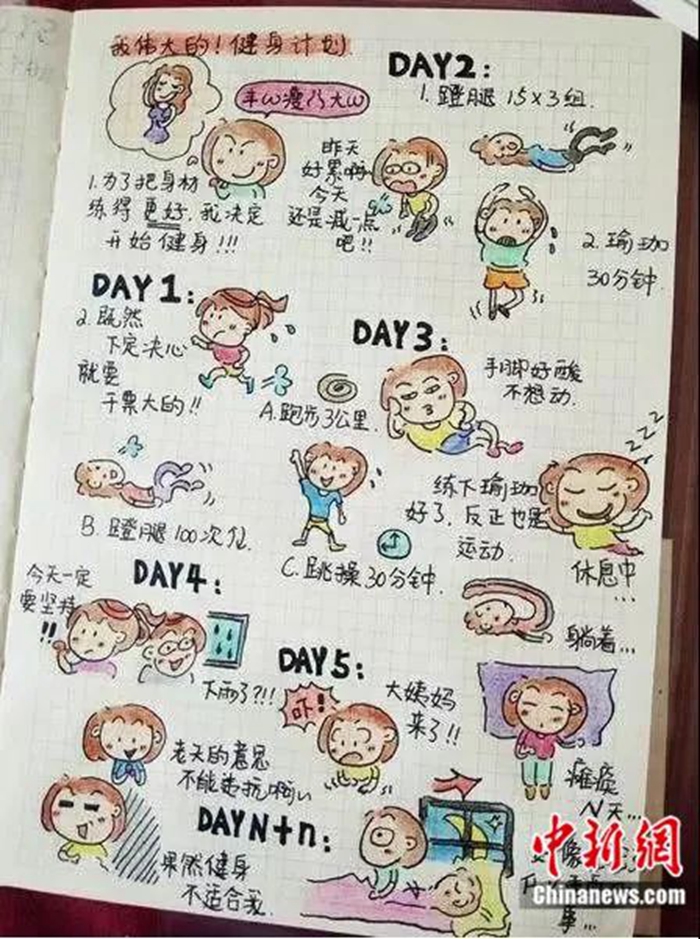 我伟大的！健身计划
丰ω瘦乃大ω
1.为了把身材
练得更好，我决定
开始健身!!!
DAY1:
2.既然
下定决心
就要
干票大的!!
A.跑步3公里.
B.蹬腿100次位.
C.跳操30分钟.
DAY2:
1.蹬腿 15×3组.
昨天
好累啊
今天
还是减一点
吧!!
2.瑜珈
30分钟.
DAY3:
手脚好酸
不想动.
练下瑜珈
好了，反正也是
运动.
zzz
休息中
...
躺着...
瘫痪
N天...
DAY4:
今天一定
要坚持
!!
下雨了?!!!
老天的意思
不能违抗啊
DAY5:
吓!
大姨妈
来了!!
DAYN+n:
果然健身
不适合我.
像
事...
中新网
Chinanews.com